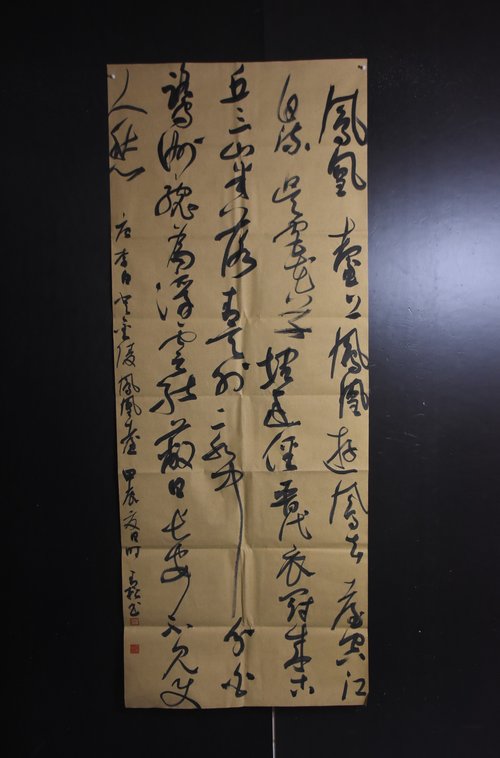 鳳凰臺上鳳凰遊鳳去臺空江
自流吳宮花草埋幽徑晉代衣冠成古
丘三山半落青天外二水中分白
鷺洲總為浮雲能蔽日長安不見使
人愁
唐李白登金陵鳳凰臺 甲辰夏日時 書